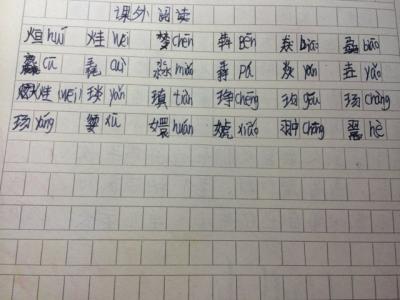 课外阅读
烜 huǐ wei chēn 犇 Bēn 猋 biāo biāo
麤 cū 毳 cuì 淼 miǎo pá 焱 yàn 垚 yáo
(wēi) 琰 yǎn 瑱 tiàn 琤 chēng gǒu 玚 chàng
玚 yáng 嬃 xū 嬛 huán xiāo 翀 chōng 翯 hè